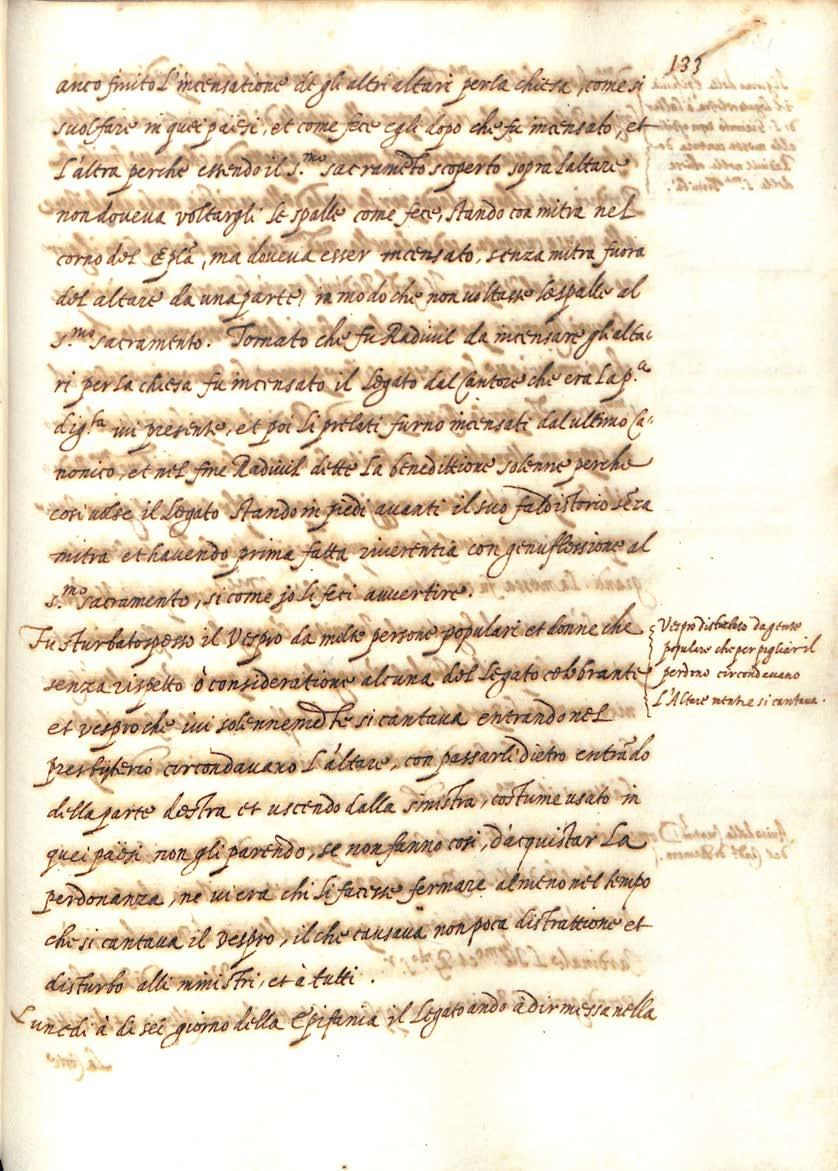 133
anco finito l'incensatione de gli altri altari per la chiesa, come si
suol fare in quei paesi, et come fece egli dopo che fu incensato, et
l'altra perche essendo il s.mo sacrameto scoperto sopra l'altare
non doveva voltargli le spalle come fece, stando con mitra nel
corno del Epla, ma doveva esser incensato, senza mitra fuora
del altare da una parte, in modo che non voltasse le spalle al
s.mo sacramento. Tornato che fu Radivil da incensare gli alta-
ri per la chiesa fu incensato il Legato dal Cantore che era la p.a
dig.ta ivi presente, et poi li prelati furno incensati dal ultimo Ca-
nonico, et nel fine Radivil dette la benedittione solenne perche
cosi volse il Legato stando in piedi avanti il suo faldistorio seza
mitra et havendo prima fatta riverentia con genuflessione al
s.mo sacramento, si come jo li feci avvertire.
Fu sturbato spesso il Vespro da molte persone populari et donne che
senza rispetto ò consideratione alcuna del Legato celebrante
et vespro che ivi solennemete si cantava entrando nel
presbyterio circondavano l'altare, con passarli dietro entrado
della parte destra et uscendo dalla sinistra, costume usato in
quei paësi non gli parendo, se non fanno cosi, d'acquistar la
perdonanza, ne vi era chi li facesse fermare almeno nel tempo
che si cantava il vespro, il che causava non poca distrattione et
disturbo alli ministri, et à tutti.
Lunedi à di sei giorno della Epifania il Legato andò à dir messa nella
Vespro disturbato da gente
populare che per pigliar il
perdono circondavano
l'Altare mentre si cantava.